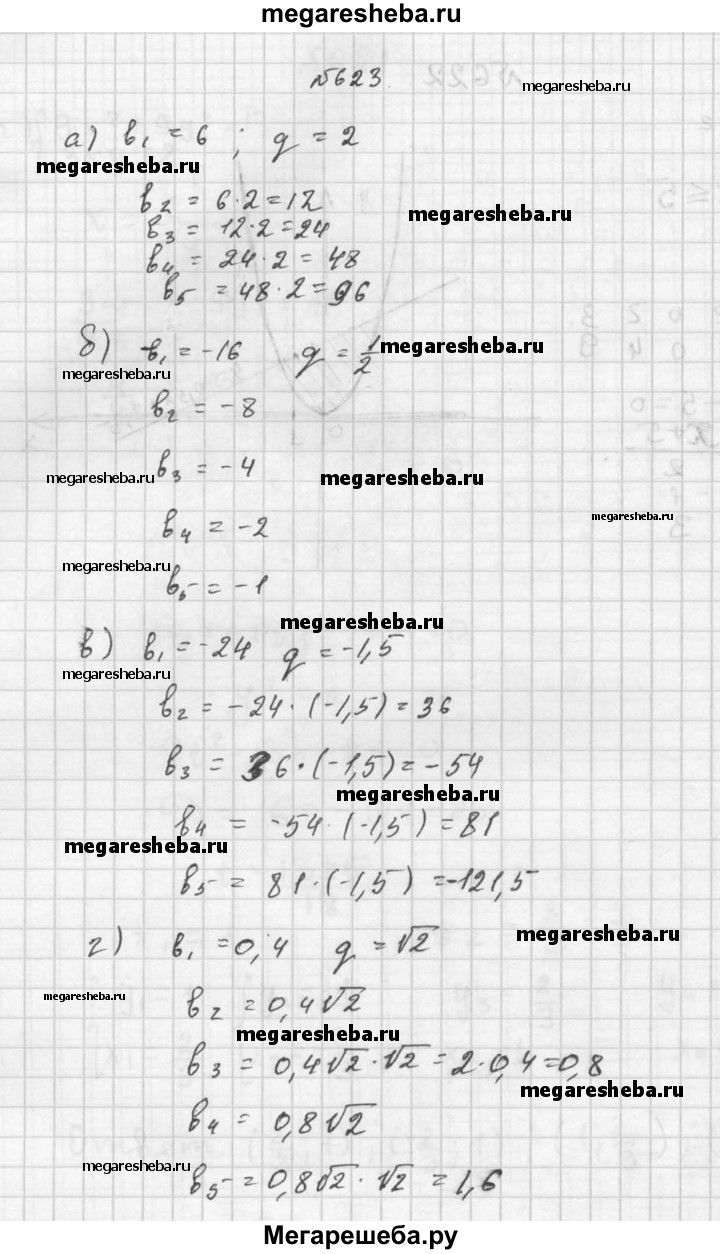 megaresheba.ru
№623.
megaresheba.ru
а) b₁ = 6 ; q = 2
megaresheba.ru
b₂ = 6·2=12
megaresheba.ru
b₃ = 12·2=24
b₄ = 24·2 = 48
b₅ = 48·2=96
б) b₁ = -16 q = 1/2
megaresheba.ru
megaresheba.ru
b₂ = -8
b₃ = -4
megaresheba.ru
megaresheba.ru
b₄ = -2
megaresheba.ru
megaresheba.ru
b₅ = -1
megaresheba.ru
в) b₁ = -24 q = -1,5
megaresheba.ru
b₂ = -24·(-1,5) = 36
b₃ = 36·(-1,5) = -54
megaresheba.ru
b₄ = -54·(-1,5) = 81
megaresheba.ru
b₅ = 81·(-1,5) = -121,5
г) b₁ = 0,4 q = √2
megaresheba.ru
megaresheba.ru
b₂ = 0,4√2
megaresheba.ru
b₃ = 0,4√2·√2 = 2·0,4=0,8
megaresheba.ru
b₄ = 0,8√2
megaresheba.ru
b₅ = 0,8√2·√2 = 1,6
Мегарешеба.ру